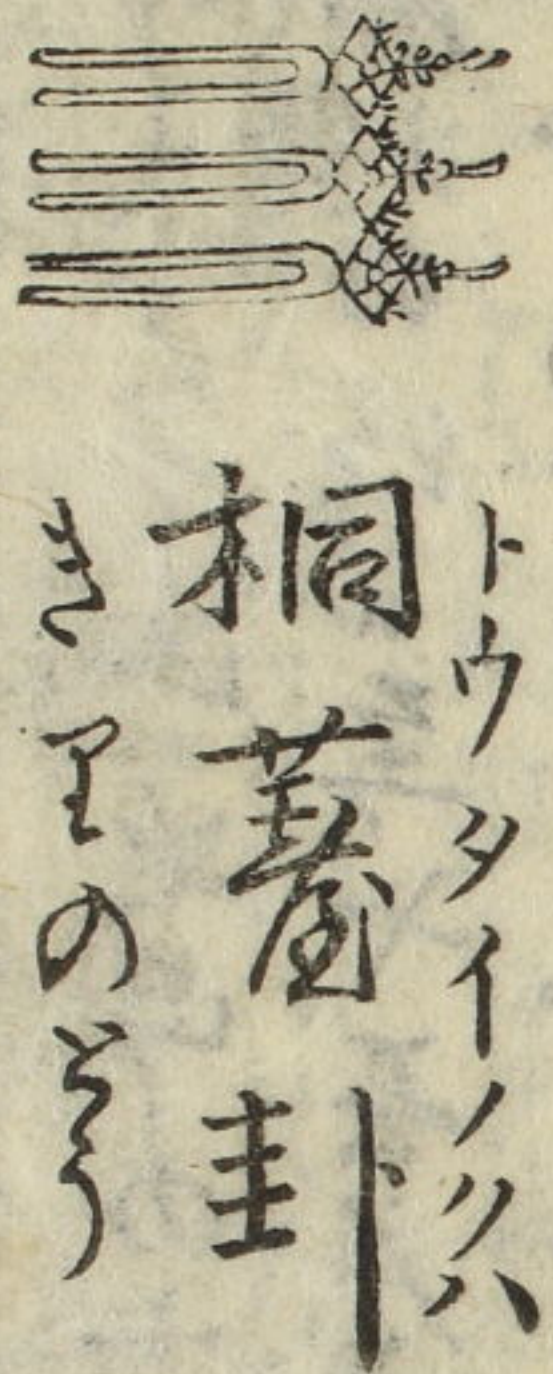 トウタイノクハ
桐薹卦
きりのとう